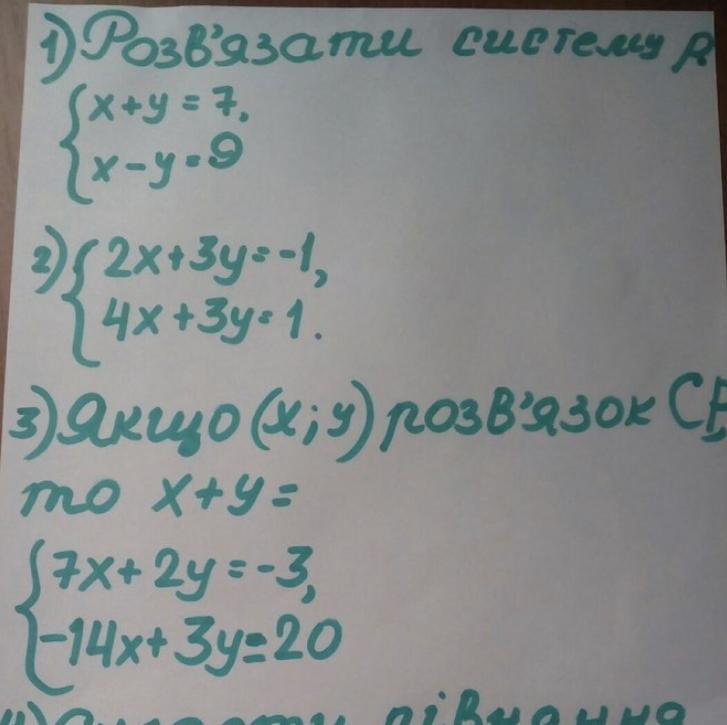 1) Розв'язати систему р
{ x+y=7,
x-y=9
2) { 2x+3y=-1,
4x+3y=1.
3) Якщо (x;y) розв'язок СР,
то x+y=
{ 7x+2y=-3,
-14x+3y=20